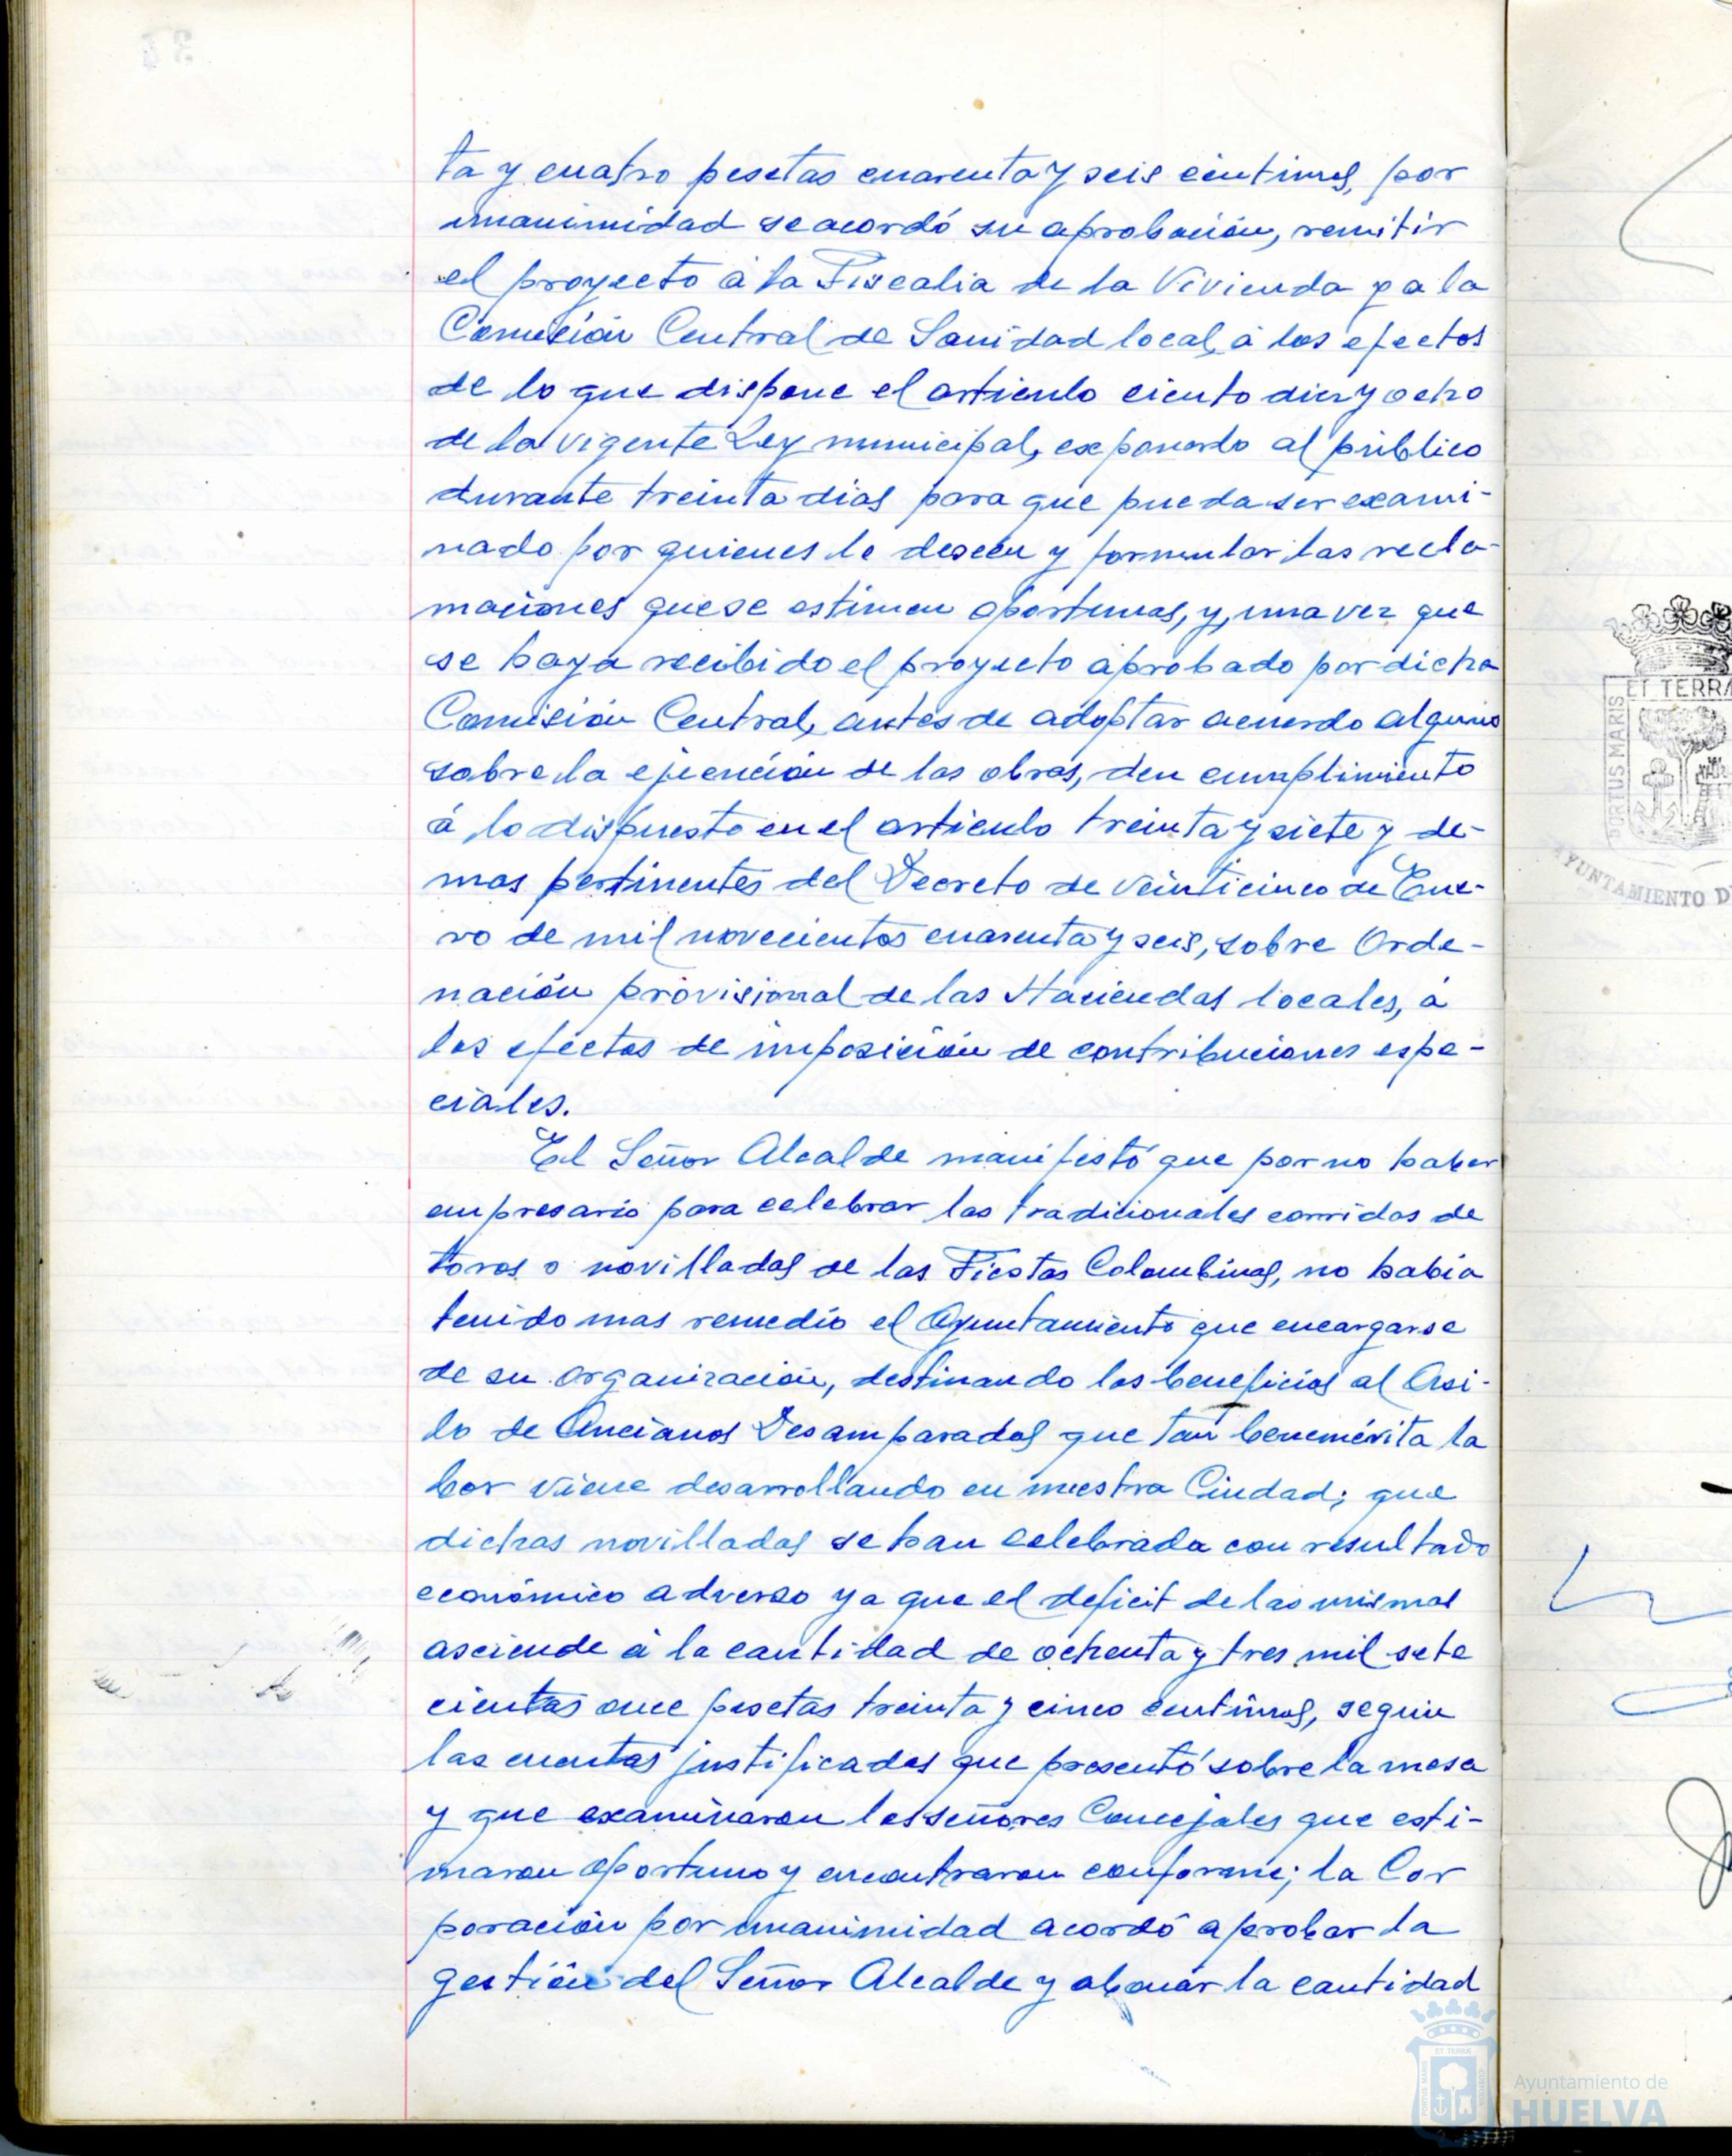 ta y cuatro pesetas cuarenta y seis céntimos, por
unanimidad se acordó su aprobación, remitir
el proyecto á la Fiscalia de la Vivienda y a la
Comisión Central de Sanidad local, á los efectos
de lo que dispone el artículo ciento diez y ocho
de la vigente Ley municipal, exponerlo al público
durante treinta dias para que pueda ser exami-
nado por quienes lo deseen y formular las recla-
maciones que se estimen oportunas, y, una vez que
se haya recibido el proyecto aprobado por dicha
Comisión Central, antes de adoptar acuerdo alguno
sobre la ejecución de las obras, den cumplimiento
á lo dispuesto en el articulo treinta y siete y de-
mas pertinentes del Decreto de veinticinco de Ene-
ro de mil novecientos cuarenta y seis, sobre Orde-
nación provisional de las Haciendas locales, á
los efectos de imposición de contribuciones espe-
ciales.
El Señor Alcalde manifestó que por no haber
empresario para celebrar las tradicionales corridas de
toros o novilladas de las Fiestas Colombinas, no habia
tenido mas remedio el Ayuntamiento que encargarse
de su organización, destinando los beneficios al Asi-
lo de Ancianos Desamparados que tan benemérita la
bor viene desarrollando en nuestra Ciudad; que
dichas novilladas se han celebrado con resultado
económico adverso ya que el deficit de las mismas
asciende á la cantidad de ochenta y tres mil sete
cientas once pesetas treinta y cinco centimos, segun
las cuentas justificadas que presentó sobre la mesa
y que examinaron los señores Concejales que esti-
maron oportuno y encontraron conforme; la Cor
poración por unanimidad acordó aprobar la
gestión del Señor Alcalde y abonar la cantidad
PORTUS MARIS
ET TERRA
AYUNTAMIENTO D
Ayuntamiento de
HUELVA